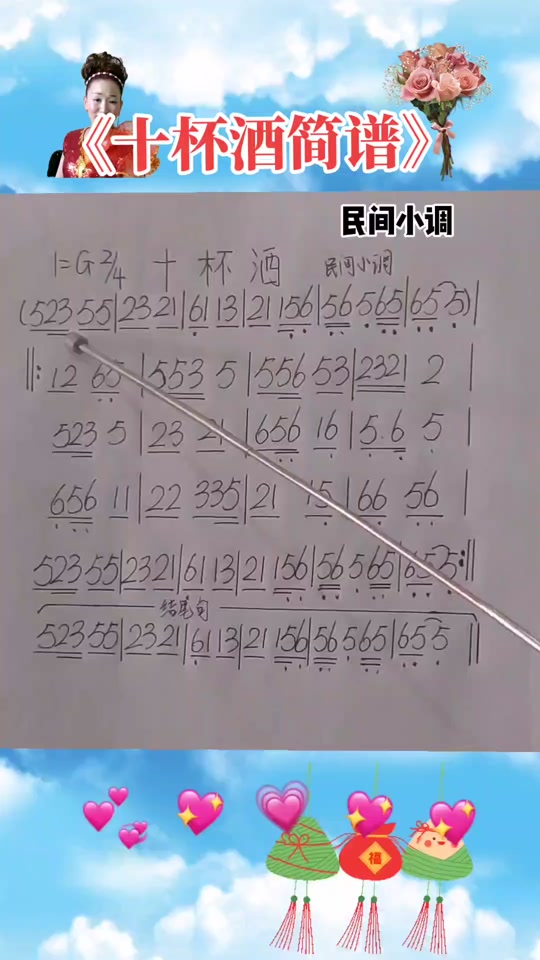 《十杯酒简谱》
民间小调
1=G 2/4 十杯酒 民间小调
(523 55|23 21|61 13|21 156|56 565|65 5)|
‖: 12 65|553 5|556 53|2321 2|
523 5|23 21|656 16|5.6 5|
656 11|22 335|21 15|66 56|
523 55|23 21|61 13|21 156|56 565|65 5:‖
结尾句
523 55|23 21|61 13|21 156|56 565|65 5‖
福